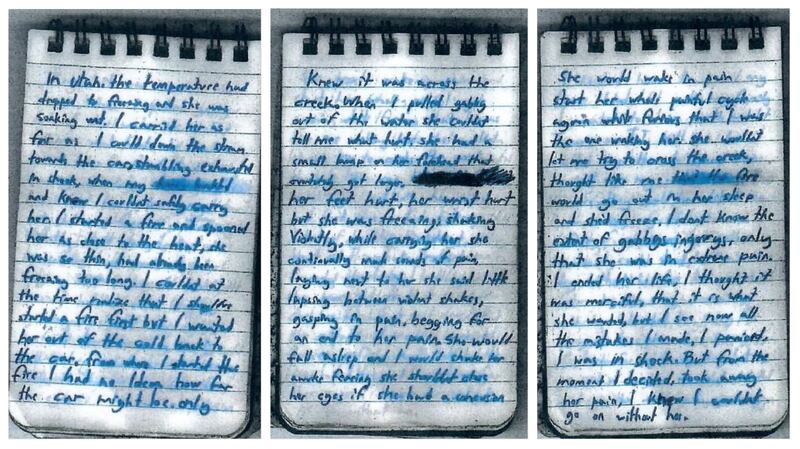 In Utah. the temperature had
dropped to freezing and she was
soaking wet. I carried her as
far as I could down the stream
towards the car, stumbling exhausted
in shock, when my
and knew I couldnt safely carry
her. I started a fire and spooned
her as close to the heat, she
was so thin, had already been
freezing too long. I couldnt at
the time realize that I should've
started a fire first but I wanted
her out of the cold back to
the car. from when I started the
fire I had no idea how far
the car might be. only
Knew it was across the
creek. When I pulled gabby
out of the water she couldnt
tell me what hurt. she had a
small bump on her forehead that
eventually got larger.
her feet hurt, her wrist hurt
but she was freezing, shaking
violently, while carrying her she
continually made sounds of pain.
laying next to her she said little
lapsing between violent shakes,
gasping in pain, begging for
an end to her pain. She would
fall asleep and I would shake her
awake fearing she shouldnt close
her eyes if she had a concusion
She would wake in pain
start her whole painful cycle
again while furious that I was
the one waking her. she wouldnt
let me try to cross the creek,
thought like me that the fire
would go out in her sleep
and she'd freeze. I dont know the
extent of gabbys injurys, only
that she was in extreme pain.
I ended her life, I thought it
was merciful, that it is what
she wanted, but I see now all
the mistakes I made, I panicked,
I was in shock. But from the
moment I decided, took away
her pain, I knew I couldnt
go on without her.